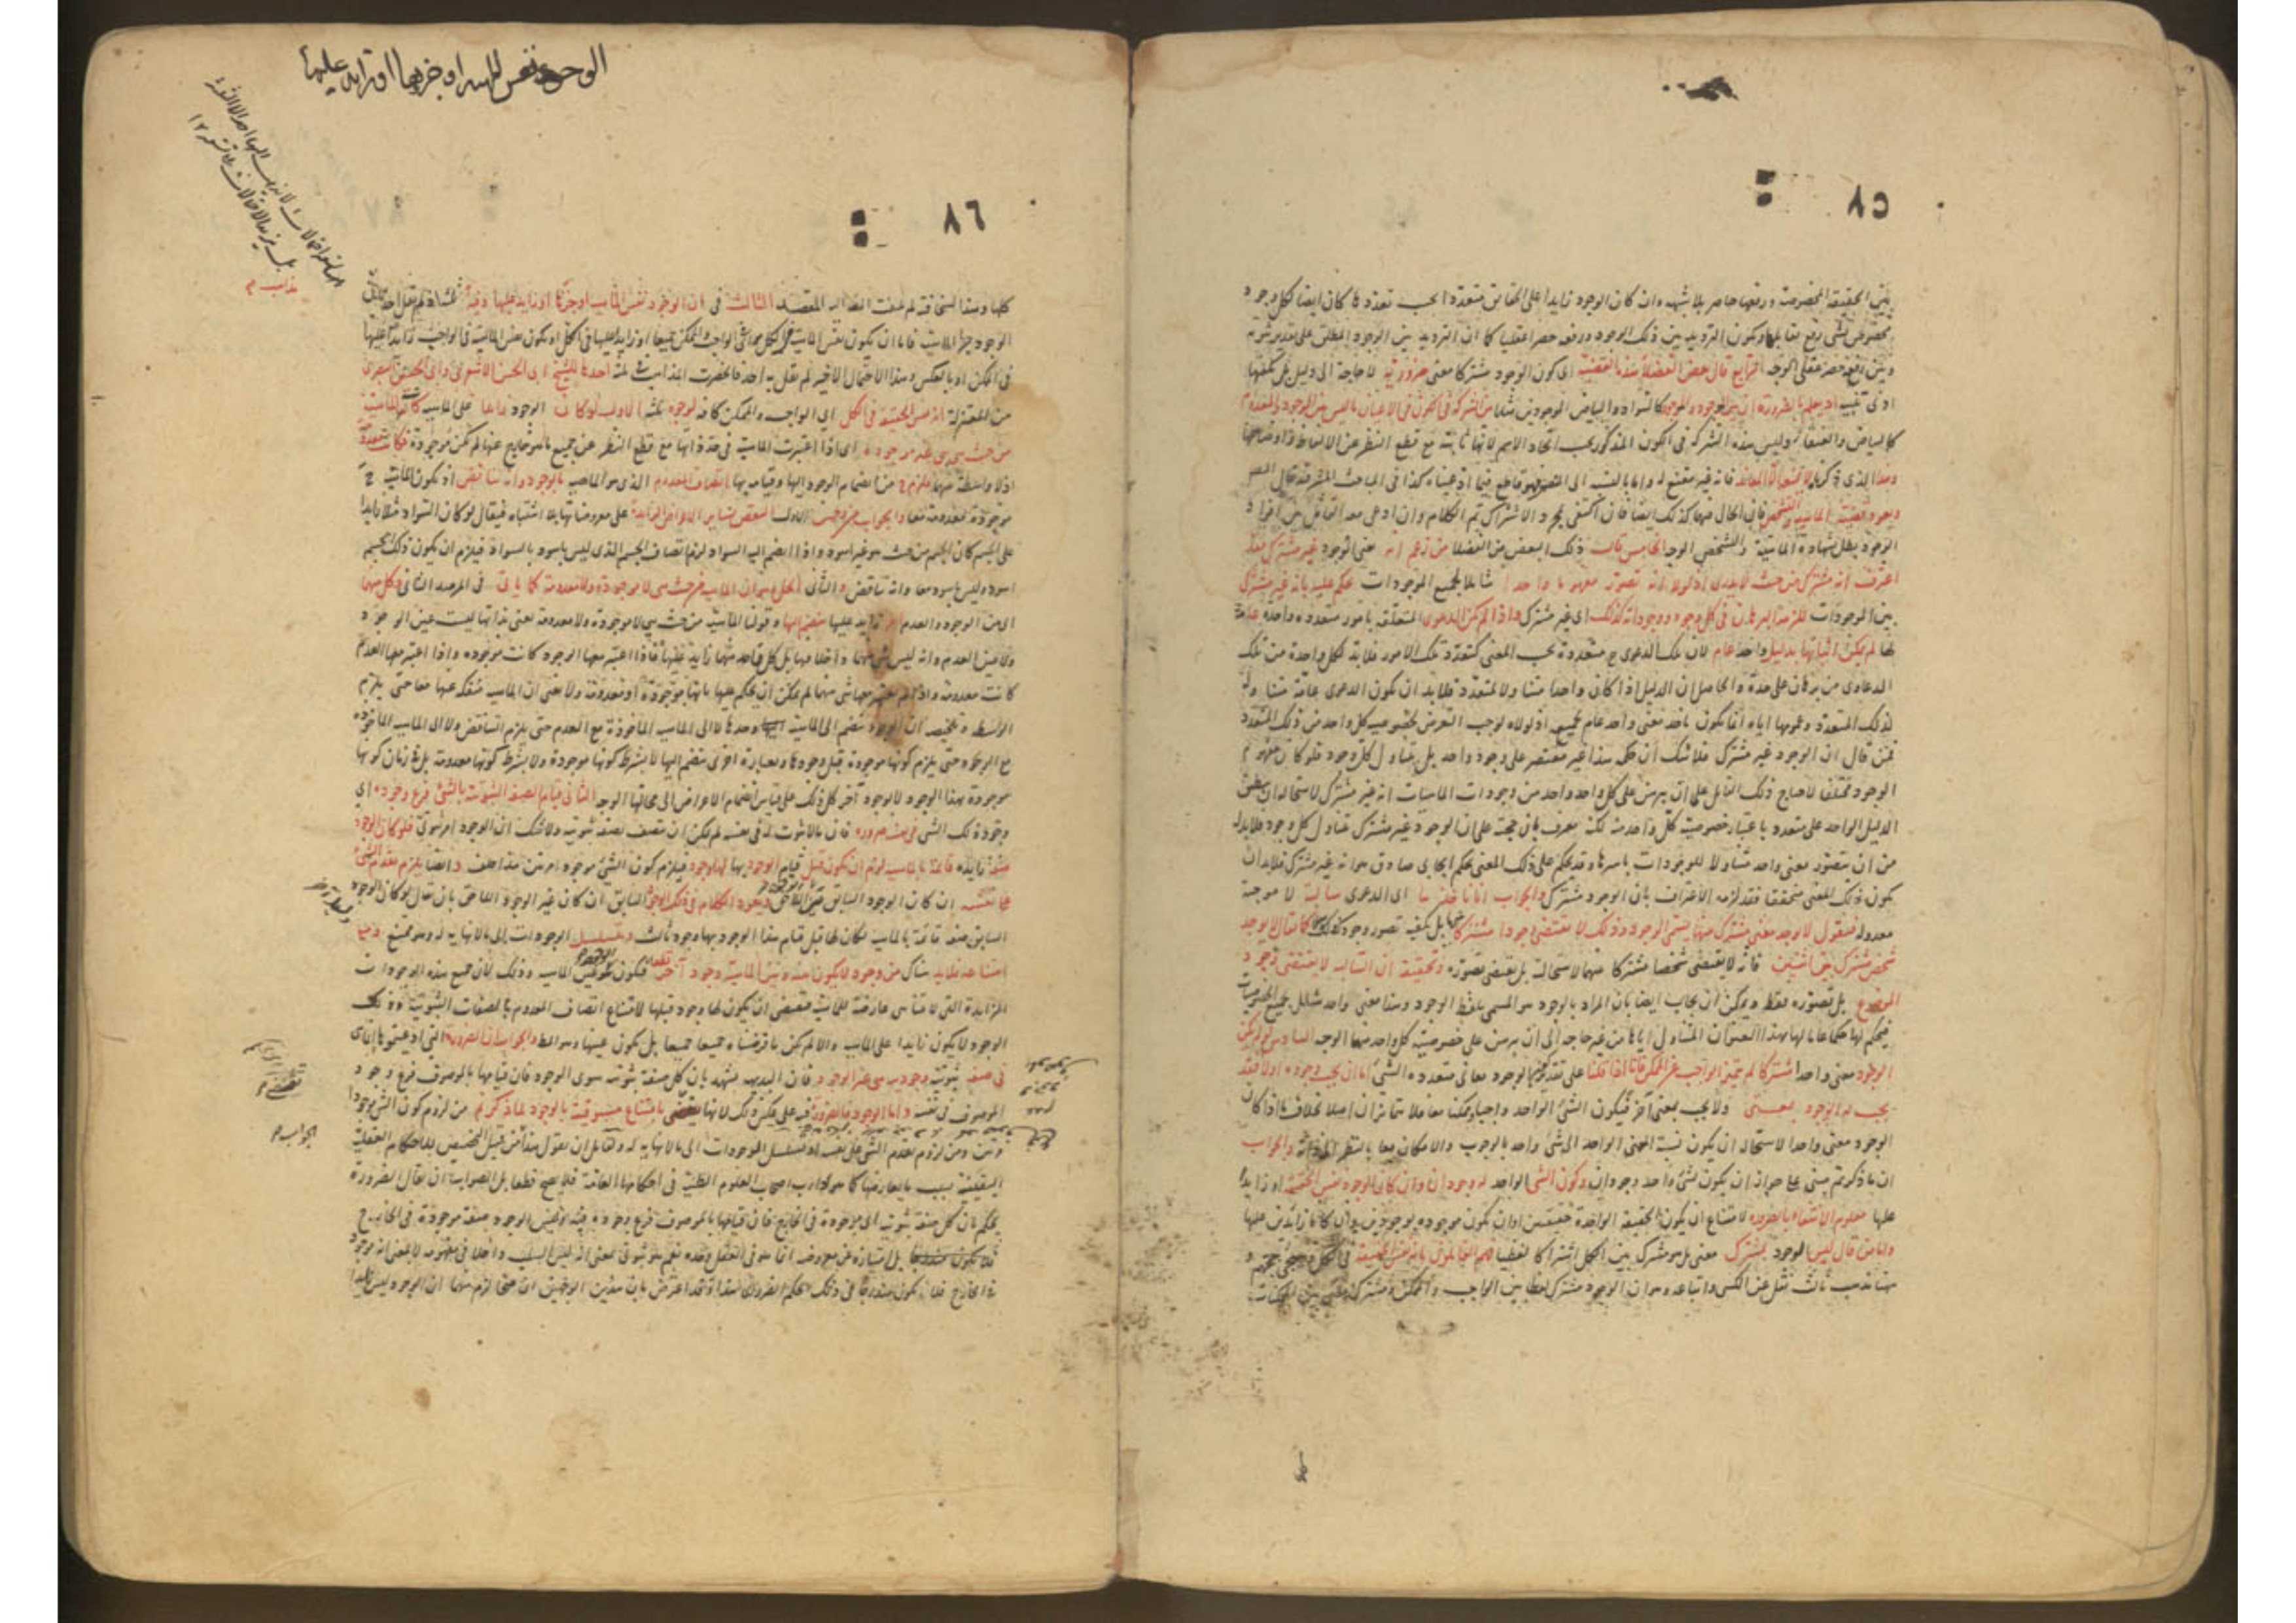 ٨٥
بين الحقيقة المخصوصة ورفعها حاصر بلا شبهة وان كان الوجود زايدا على الحقايق متعددا بحسب تعددها كان ايضا لكل وجود
مخصوص شئ رفع يقابله ويكون الترديد بين ذلك الوجود ورفعه حصرا عقليا كما ان الترديد بين الوجود المطلق على تقدير ثبوته
وبين رفعه حصر عقلى الوجه الرابع قال بعض الفضلاء هذه القضية اى كون الوجود مشتركا معنى ضرورية لا حاجة الى دليل بل يكفيها
ادنى تنبيه اذ يعلم بالضرورة ان بين الموجود والموجود كالسواد والبياض الموجودين مثلا من الشركة فى الكون فى الاعيان ما ليس بين الموجود والمعدوم
كالبياض والعنقاء وليس هذه الشركة فى الكون المذكور بحسب اتحاد الاسم لانها ثابتة مع قطع النظر عن الالفاظ واوضاعها
وهذا الذى ذكرناه لا يمنعه الا المعاند فانه غير مقنع له واما بالنسبة الى المنصف فهو قاطع فيما ادعيناه كذا فى المباحث المشرقية قال المصنف
ويعود قضية الماهية والتشخص فان الحال فيهما كذلك ايضا فان اكتفى بمجرد الاشتراك تم الكلام وان ادعى معه التماثل بين افراد
الوجود بطل بشهادة الماهية والتشخص الوجه الخامس قالت ذلك البعض من الفضلا من زعم ان معنى الوجود غير مشترك فقد
اعترف انه مشترك من حيث لا يدرى اذ لولا انه تصور مفهوما واحدا شاملا لجميع الموجودات يحكم عليه بانه غير مشترك
بين الموجودات للزمه البرهان فى كل وجود ووجود انه كذلك اى غير مشترك واذا لم يكن الدعوى المتعلقة بامور متعددة واحدة عامة
لها لم يمكن اثباتها بدليل واحد عام لان تلك الدعوى ح متعددة بحسب المعنى كتعدد تلك الامور فلابد لكل واحدة من تلك
الدعاوى من برهان على حدة والحاصل ان الدليل اذا كان واحدا متناولا لمتعدد فلابد ان يكون الدعوى عامة متناولة
لذلك المتعدد وعمومها اياه انما يكون باخذ معنى واحد عام لجميعه اذ لولاه لوجب التعرض لخصوصية كل واحد من ذلك المتعدد
فمن قال ان الوجود غير مشترك فلا شك ان حكمه هذا غير مقتصر على وجود واحد بل يتناول كل وجود فلو كان مفهوم
الوجود مختلفا لاحتاج ذلك القائل على ان يبرهن على كل واحد واحد من وجودات الماهيات انه غير مشترك لاستحالة ان ينطبق
الدليل الواحد على متعدد باعتبار خصوصية كل واحد منه لكنه معترف بان حجته على ان الوجود غير مشترك تتناول كل وجود فلابد له
من ان يتصور معنى واحد متناولا للوجودات باسرها وقد يحكم على ذلك المعنى بحكم ايجابى صادق هو انه غير مشترك فلابد ان
يكون ذلك المعنى متحققا فقد لزمه الاعتراف بان الوجود مشترك والجواب انا ناخذها اى الدعوى سالبة لا موجبة
معدولة فنقول لا يوجد معنى مشترك بينها يسمى الوجود وذلك لا يقتضى وجودا مشتركا بينها بل يكفيه تصور وجود كذلك كما يقال لا يوجد
شخص مشترك بين اثنين فانه لا يقتضى شخصا مشتركا بينهما لاستحالته بل يقتضى تصوره وتحقيقه ان السالبة لا يقتضى وجود
الموضوع بل تصوره فقط ويمكن ان يجاب ايضا بان المراد بالوجود هو المسمى بلفظ الوجود وهذا معنى واحد شامل لجميع الخصوصيات
فيحكم لها حكما عاما لها بهذا العنوان المتناول اياها من غير حاجة الى ان يبرهن على خصوصية كل واحد منهما الوجه السادس لو لم يكن
الوجود معنى واحدا مشتركا لم يتميز الواجب عن الممكن فانا اذا قلنا على تقدير كون الوجود معانى متعددة الشئ اما ان يجب وجوده اولا فقد
يجب له الوجود بمعنى ولا يجب بمعنى آخر فيكون الشئ الواحد واجبا وممكنا معا فلا تمايزا اصلا بخلاف ما اذا كان
الوجود معنى واحدا لاستحالة ان يكون نسبة المعنى الواحد الى شئ واحد بالوجوب والامكان معا بالنظر الى ذاته والجواب
ان ما ذكرتم مبنى على جواز ان يكون لشئ واحد وجودان وكون الشئ الواحد له وجودان وان كان الوجود نفس الحقيقة او زايدا
عليها معلوم الانتفاء بالضرورة لامتناع ان يكون الحقيقة الواحدة حقيقتين اوان يكون موجودة بوجودين وان كانا زايدين عليها
واما من قال ليس الوجود بمشترك معنى بل هو مشترك بين الكل اشتراكا لفظيا فهم القائلون بانه نفس الحقيقة فى الكل
ههنا مذهب ثالث نقل عن الكشى واتباعه وهو ان الوجود مشترك لفظا بين الواجب والممكن ومشترك معنى بين الممكنات
الوجود نفس الماهية او جزؤها او زايد عليها
٨٦
مذاهب م
كلها وهذا لسخافته لم يلتفت اليه المقصد الثالث فى ان الوجود نفس الماهية او جزؤها او زايد عليها وفيه لم يقل احد بان
الوجود جزء الماهية فاما ان يكون نفس الماهية فى الكل اى فى الواجب والممكن جميعا او زايدا عليها فى الكل او يكون نفس الماهية فى الواجب زايدا عليها
فى الممكن او بالعكس وهذا الاحتمال الاخير لم يقل به احد فانحصرت المذاهب فى ثلثة احدها للشيخ ابى الحسن الاشعرى وابى الحسين البصرى
من المعتزلة انه نفس الحقيقة فى الكل اى الواجب والممكن كافة لوجوه ثلثة الاول لو كان الوجود زايدا على الماهية كانت الماهية
من حيث هى هى غير موجودة اى اذا اعتبرت الماهية فى حد ذاتها مع قطع النظر عن جميع ما هو خارج عنها لم يكن موجودة فكانت معدومة
اذ لا واسطة بينهما فلزم ح من انضمام الوجود اليها وقيامه بها اتصاف المعدوم الذى هو الماهية بالوجود وانه تناقض اذ يكون الماهية ح
موجودة معدومة معا والجواب من وجهين الاول النقض بساير الاعراض الزايدة على معروضاتها بلا اشتباه فيقال لو كان السواد مثلا زايدا
على الجسم كان الجسم من حيث هو غير اسود واذا انضم اليه السواد لزم اتصاف الجسم الذى ليس باسود بالسواد فيلزم ان يكون ذلك الجسم
اسود وليس باسود معا وانه تناقض والثانى الحل وهو ان الماهية من حيث هى لا موجودة ولا معدومة كما يأتى فى المرصد الثانى وكل منهما
اى من الوجود والعدم امر زايد عليها ينضم اليها وقولنا الماهية من حيث هى لا موجودة ولا معدومة نعنى به انها ليست عين الوجود
ولا عين العدم وانه ليس شئ منهما داخلا فيها بل كل واحد منهما زايد عليها فاذا اعتبر معها الوجود كانت موجودة واذا اعتبر معها العدم
كانت معدومة واذا لم يعتبر معها شئ منهما لم يمكن ان يحكم عليها بانها موجودة او معدومة ولا نعنى ان الماهية منفكة عنهما معا حتى يلزم
الواسطة وتلخيصه ان الوجود ينضم الى الماهية وحدها لا الى الماهية الماخوذة مع العدم حتى يلزم التناقض ولا الى الماهية الماخوذة
مع الوجود حتى يلزم كونها موجودة قبل وجودها وبعبارة اخرى ينضم اليها لا بشرط كونها موجودة ولا بشرط كونها معدومة بل فى زمان كونها
موجودة بهذا الوجود لا بوجود آخر كل ذلك على قياس انضمام الاعراض الى محالها الوجه الثانى قيام الصفة الثبوتية بالشئ فرع وجوده اى
وجود ذلك الشئ فى نفسه ضرورة فان ما لا ثبوت له فى نفسه لم يمكن ان يتصف بصفة ثبوتية ولا شك ان الوجود امر ثبوتى فلو كان الوجود
صفة زايدة قائمة بالماهية لزم ان يكون قبل قيام الوجود بها لها وجود فيلزم كون الشئ موجودا مرتين هذا خلف وايضا يلزم تقدم الشئ
على نفسه ان كان الوجود السابق عين اللاحق ويعود الكلام فى ذلك الوجود السابق ان كان غير الوجود اللاحق بان يقال لو كان الوجود
السابق صفة قائمة بالماهية لكان لها قبل قيام هذا الوجود بها وجود ثالث ويتسلسل الوجودات الى ما لا نهاية له وهو ممتنع ومع
امتناعه فلابد هناك من وجود لا يكون بينه وبين الماهية وجود آخر فيكون هو عين الماهية وذلك لان جميع هذه الوجودات
المتزايدة التى لا تتناهى عارضة للماهية فيقتضى ان يكون لها وجود قبلها لامتناع اتصاف المعدوم بالصفات الثبوتية وذلك
الوجود لا يكون زايدا على الماهية والا لم يكن ما فرضناه جميعا جميعا بل يكون عينها وهو المط والجواب ان الضرورة التى ادعيتموها انما هى
فى صفة ثبوتية وجودية هى غير الوجود فان البديهة تشهد بان كل صفة ثبوتية سوى الوجود فان قيامها بالموصوف فرع وجود
الموصوف فى نفسه واما الوجود فالضرورة فيه على عكس ذلك لانها يقتضى بامتناع مسبوقيته بالوجود لما ذكرتم من لزوم كون الشئ موجودا
مرتين ومن لزوم تقدم الشئ على نفسه او تسلسل الموجودات الى ما لا نهاية له ولقائل ان يقول هذا من قبيل التخصيص للاحكام العقلية
اليقينية بسبب ما يعارضها كما هو داب اصحاب العلوم الظنية فى احكامها العامة فلا يصح قطعا بل الصواب ان يقال الضرورة
يحكم بان كل صفة ثبوتية اى موجودة فى الخارج فان قيامها بالموصوف فرع وجوده فيه وليس الوجود صفة موجودة فى الخارج
بل امتيازه عن معروضه انما هو فى العقل وحده نعم هو ثبوتى بمعنى انه ليس السلب داخلا فى مفهومه لا بمعنى انه موجود
فى الخارج فلا يكون مندرجا فى ذلك الحكم الضرورى هذا وقد اعترض بان هذين الوجهين ان صحا لزم منهما ان الوجود ليس زايدا
الجواب م